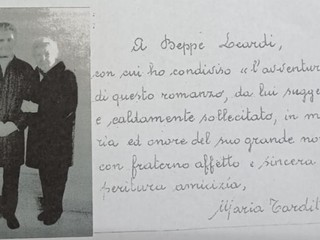 A Beppe Leardi,
con cui ho condiviso « l'avventur
di questo romanzo, da lui sugge
e caldamente sollecitato, in m
ria ed onore del suo grande no
con fraterno affetto e sincera
peritura amicizia,
Maria Tardit